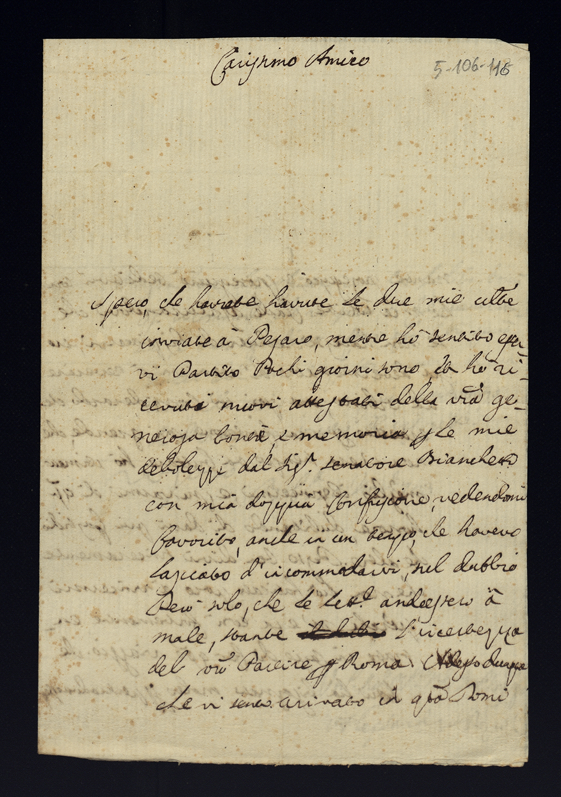 Carissimo Amico
5-106-115
Spero, che havrete havute le due mie ultĕ
inviate à Pesaro, mentre hò sentito esser
vi Partito Pochi giorni sono Et hò ri
cevuti nuovi attestati della vrã ge
nerosa bontà, e memoria p le mie
debolezze dal Sigr. Senatore Bianchetti
con mia doppia confusione, vedendomi
favorito, anche in un tempo, che havevo
lasciato d'incommodarvi, sul dubbio
Però solo, che le lettre andassero à
male, stante l'incertezza
del vrõ Partire p Roma. Adesso dunque
che vi sento arivato in qta Domi